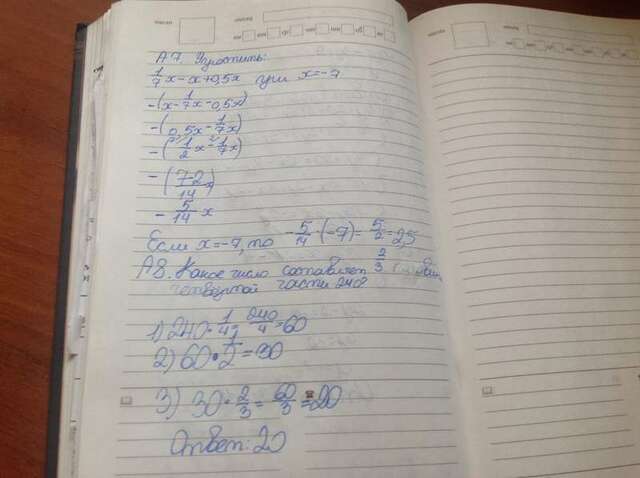 А7. Упростить:
1/7x-x+0,5x при x=-7
-(x-1/7x-0,5x)
-(0,5x-1/7x)
-(1/2x-1/7x)
-(7-2/14x)
-5/14x
Если x=-7, то -5/14·(-7)=5/2=2,5
А8. Какое число составляет 2/3
четвертой части 240?
1) 240·1/4=240/4=60
2) 60·1/2=30
3) 30·2/3=60/3=20
Ответ: 20